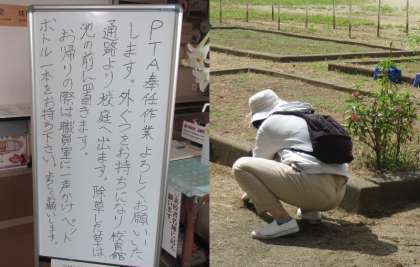 PTA奉仕作業よろしくお願いいた
します。外ぐつをお持ちになり体育館
通路より校庭へ出ます。除草した草は
池の前に置きます。
お帰りの際は職員室に一声かけペット
ボトル一本をお持ち下さい。よろしくお願いします。